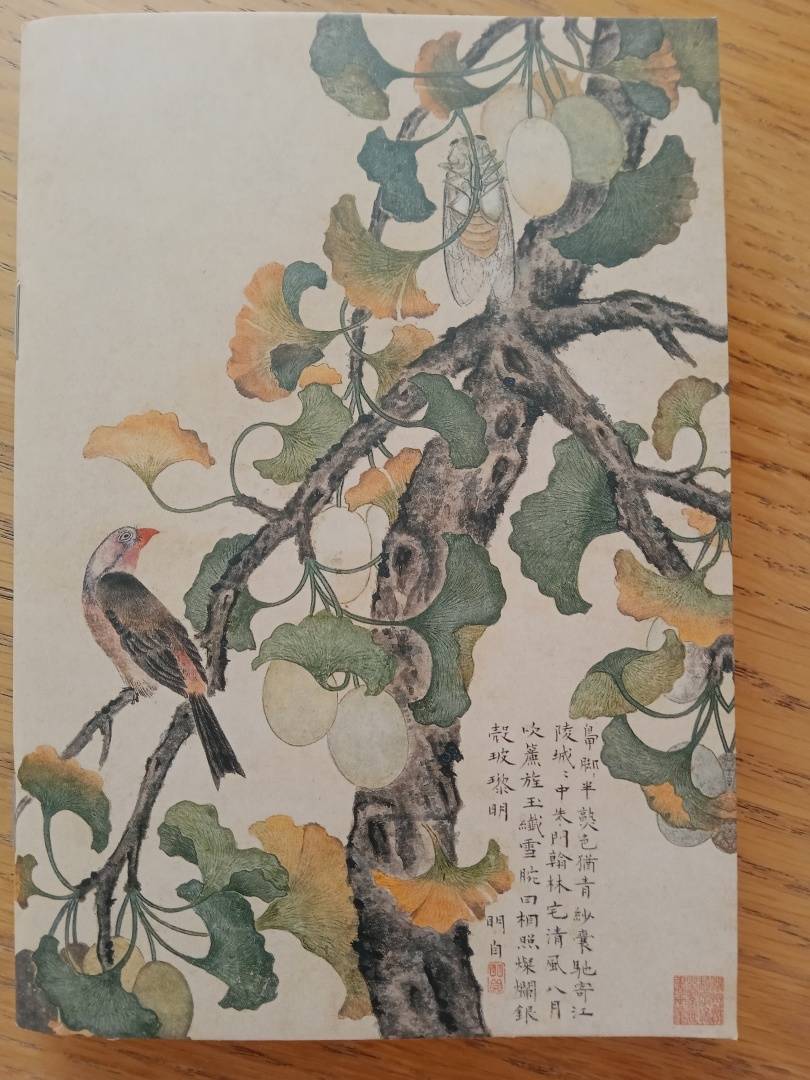 鳧脚半熟色猶青紗囊馳寄江
陵城〻中朱門翰林宅清風八月
吹簾旌玉纖雪腕白相照燦爛銀
殼玻瓈明